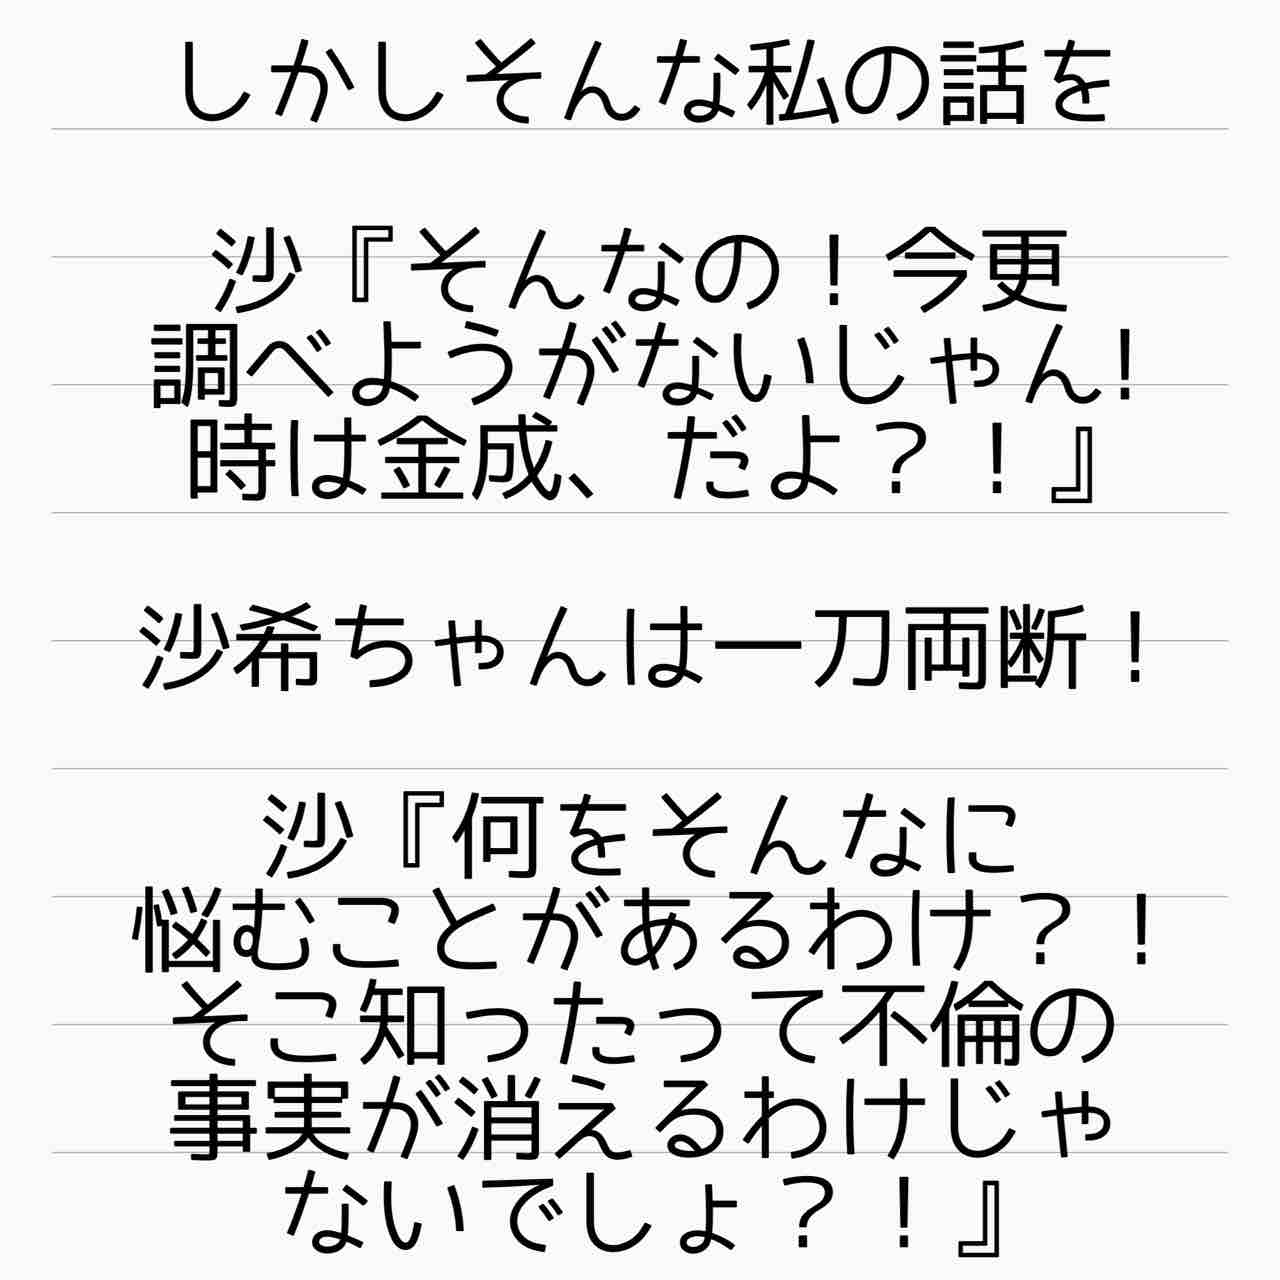 しかしそんな私の話を
沙『そんなの！今更
調べようがないじゃん!
時は金成、だよ？！』
沙希ちゃんは一刀両断！
沙『何をそんなに
悩むことがあるわけ？！
そこ知ったって不倫の
事実が消えるわけじゃ
ないでしょ？！』